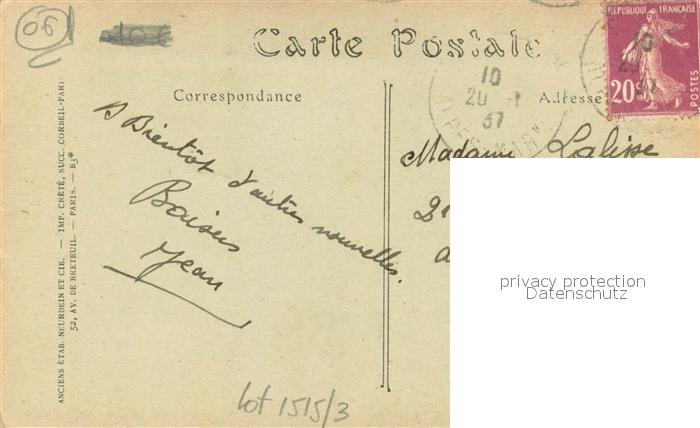 06
Carte Postale
RÉPUBLIQUE FRANÇAISE
20c
POSTES
10
20 - 1
37
Correspondance
Adresse
Madame
A Bientôt d'autres nouvelles.
Baisers
Jean
ANCIENS ÉTAB. NEURDEIN ET CIE. — IMP. CRÉTÉ, SUCC. CORBEIL-PARIS
52, AV. DE BRETEUIL. — PARIS. — B3*
privacy protection
Datenschutz
Lot 1515/3